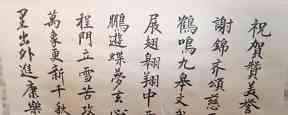 祝賀贊美譽
謝錦齊頌慈
鶴鳴九皋文
展翅翱翔中
鵬遊蝶夢玄
程門立雪苦
萬象更新千秋
里出外進康樂